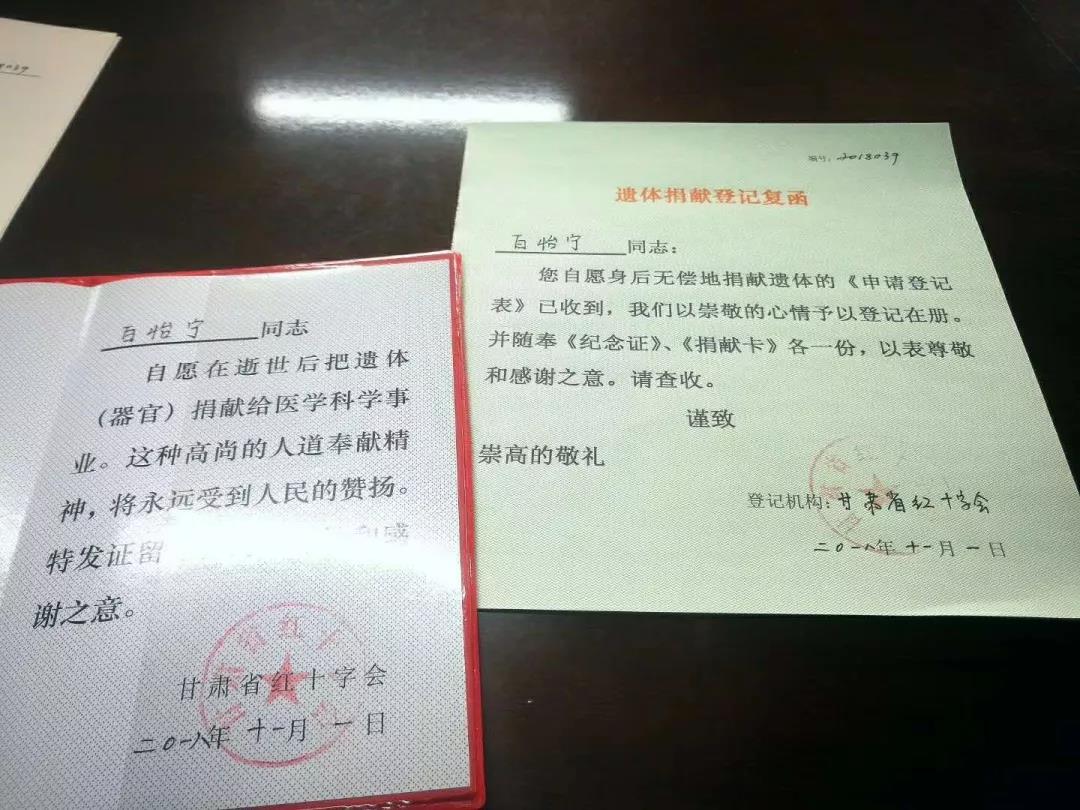 8039
百怡宁 同志
自愿在逝世后把遗体
（器官）捐献给医学科学事
业。这种高尚的人道奉献精
神，将永远受到人民的赞扬。
特发证留
谢之意。
甘肃省红十字会
二〇一八年 十一月 一 日
编号：2018039
遗体捐献登记复函
百怡宁 同志：
您自愿身后无偿地捐献遗体的《申请登记
表》已收到，我们以崇敬的心情予以登记在册。
并随奉《纪念证》、《捐献卡》各一份，以表尊敬
和感谢之意。请查收。
谨致
崇高的敬礼
登记机构：甘肃省红十字会
二〇一八年 十一月 一 日